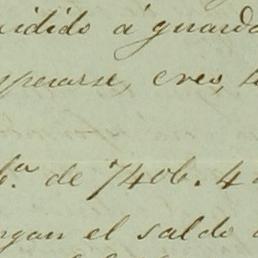 cidido á guarda
sperarse, creo,
de 7406. 4
ngan el saldo